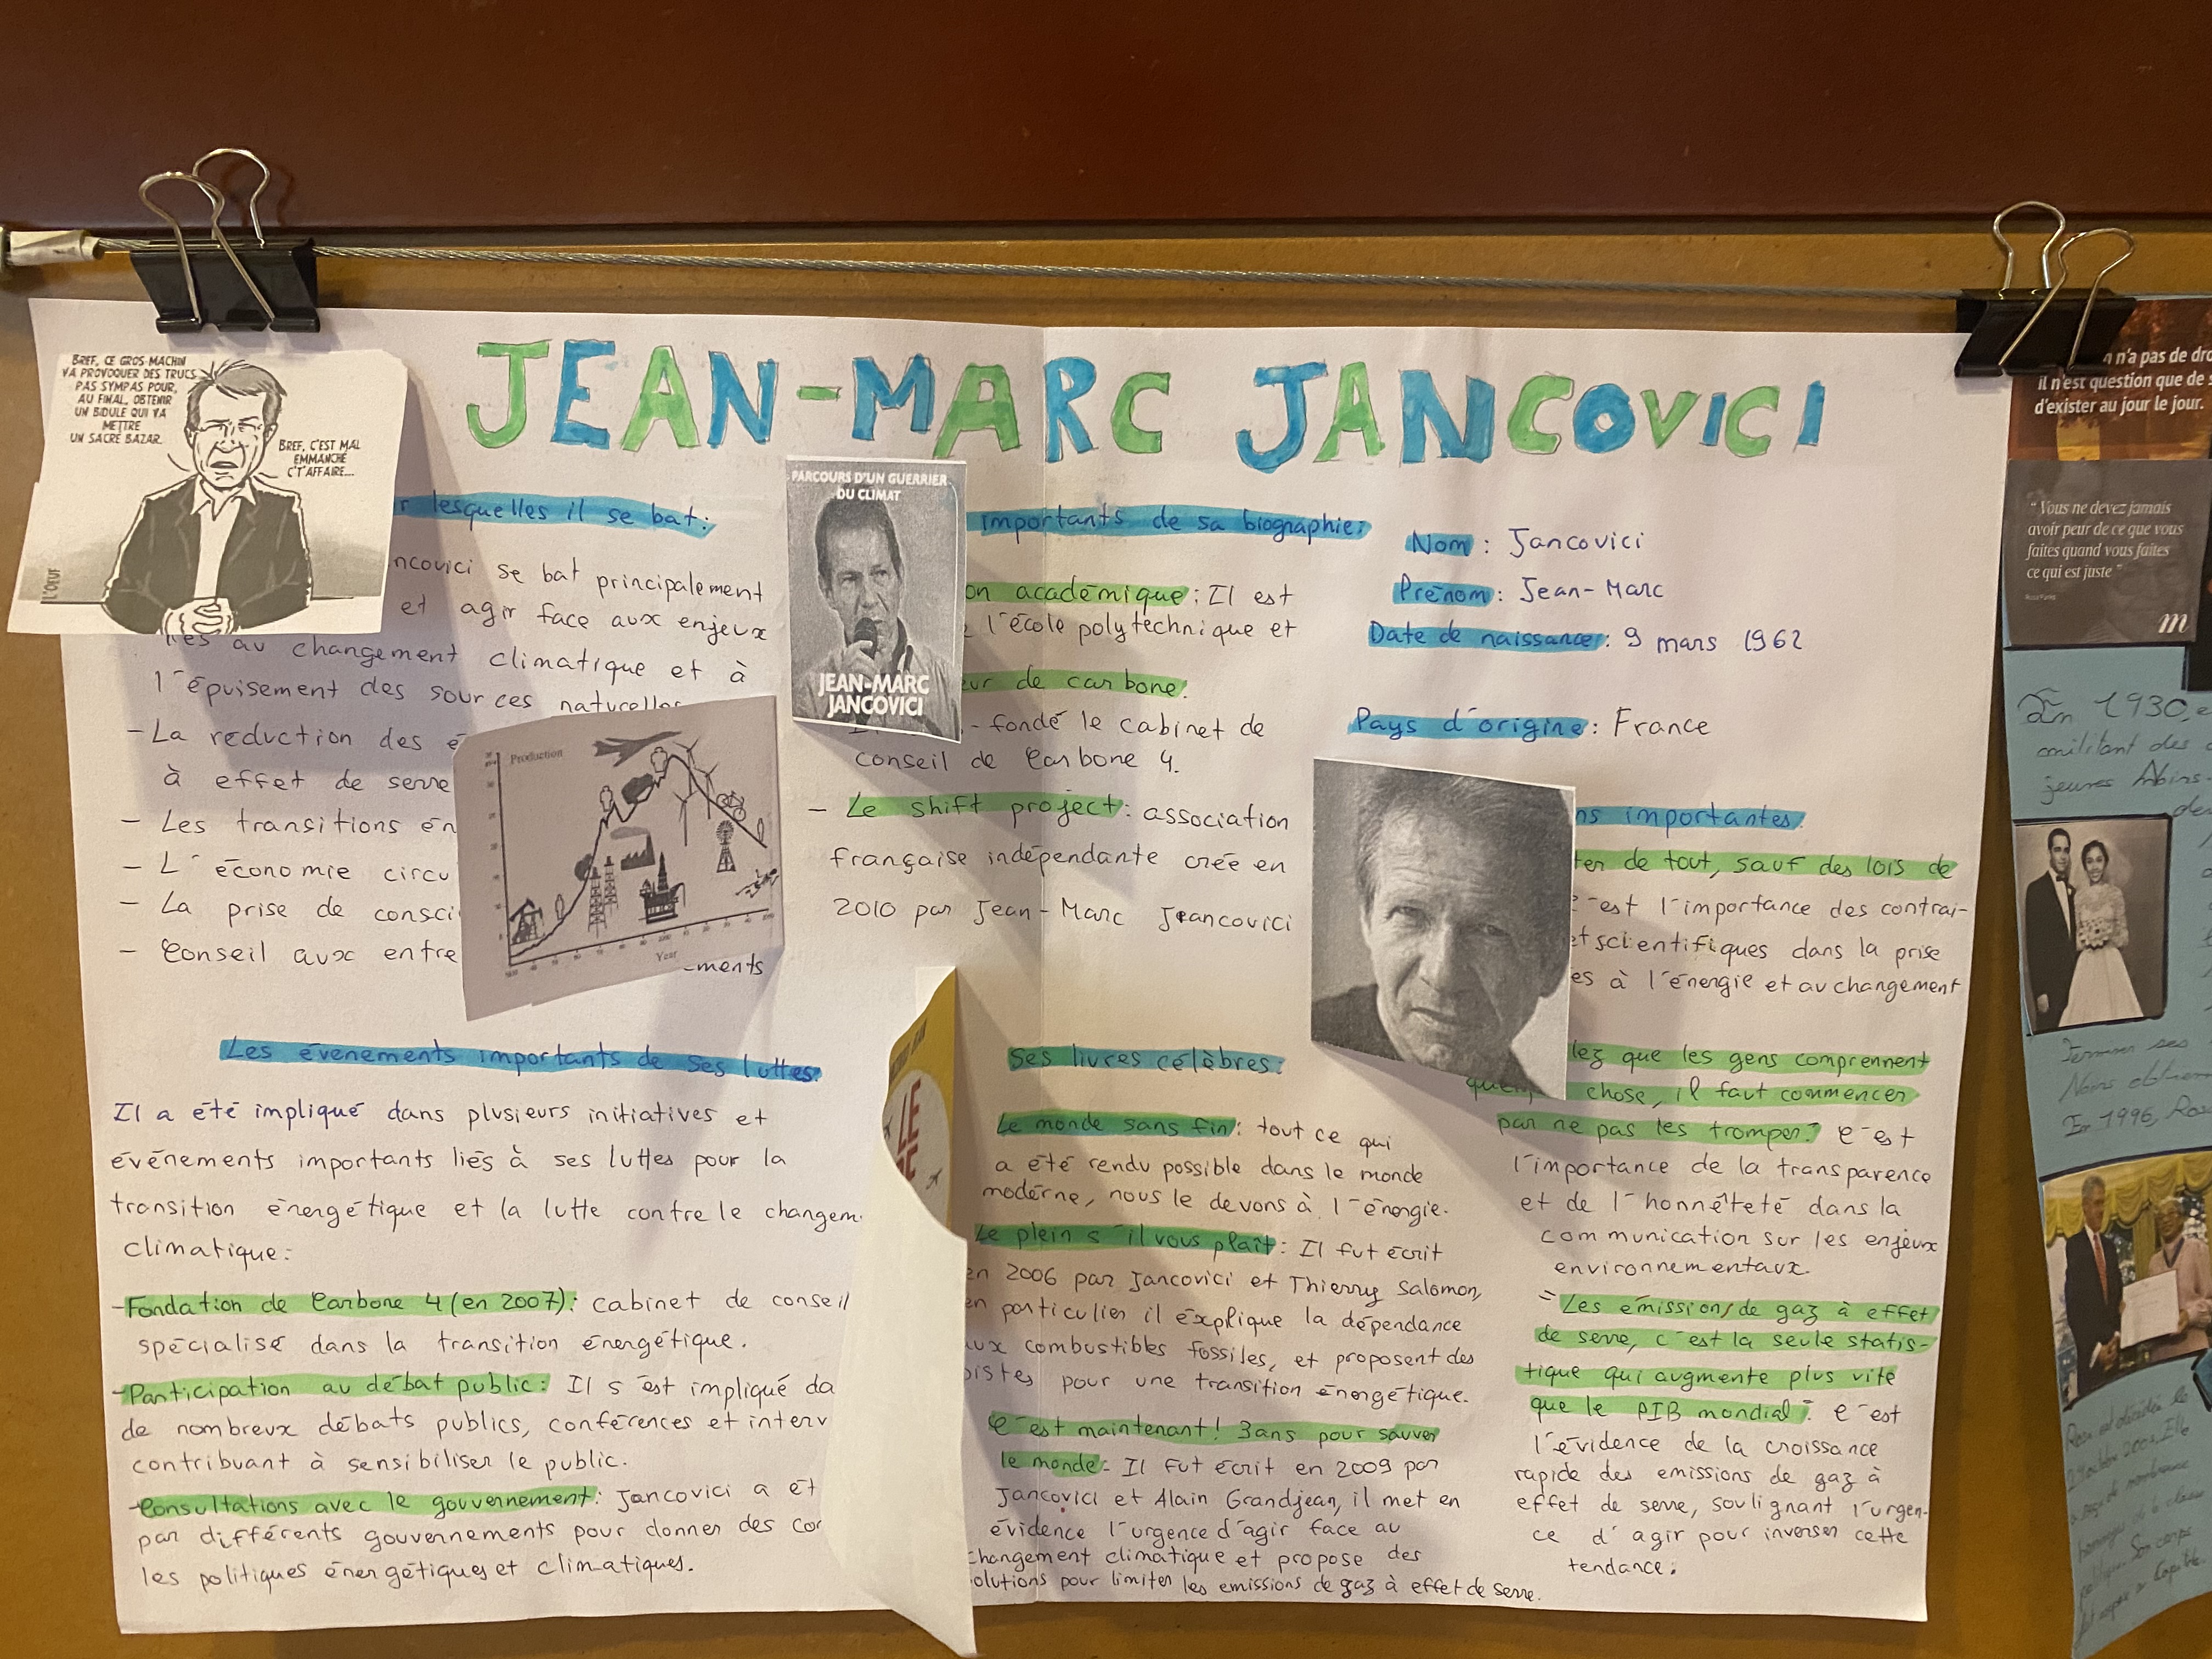 JEAN-MARC JANCOVICI
BREF, CE GROS MACHIN
VA PROVOQUER DES TRUCS
PAS SYMPAS POUR,
AU FINAL, OBTENIR
UN BIDULE QUI VA
METTRE
UN SACRÉ BAZAR.
BREF, C'EST MAL
EMMANCHÉ
C'T'AFFAIRE...
L'OEUF
lesquelles il se bat:
ncovici se bat principalement
et agir face aux enjeux
liés au changement climatique et à
l'épuisement des sources naturelles
- La reduction des é
à effet de serre
- Les transitions én
- L'économie circu
- La prise de consci
- Conseil aux entre
ements
Production
Year
Les évenements importants de ses luttes:
Il a été impliqué dans plusieurs initiatives et
événements importants liés à ses luttes pour la
transition énergétique et la lutte contre le changem
climatique:
-Fondation de Carbone 4 (en 2007): cabinet de conseil
spécialisé dans la transition énergétique.
-Participation au débat public: Il s'est impliqué da
de nombreux débats publics, conférences et interv
contribuant à sensibiliser le public.
-Consultations avec le gouvernement: Jancovici a ét
par différents gouvernements pour donner des con
les politiques énergétiques et climatiques.
PARCOURS D'UN GUERRIER
DU CLIMAT
JEAN-MARC
JANCOVICI
importants de sa biographie:
on académique: Il est
l'école polytechnique et
eur de carbone:
-fondé le cabinet de
conseil de Carbone 4.
- Le shift project: association
française indépendante créé en
2010 par Jean-Marc Jeancovici
LE
Ses livres célèbres:
Le monde sans fin: tout ce qui
a été rendu possible dans le monde
moderne, nous le devons à l'énergie.
Le plein s'il vous plaît: Il fut écrit
en 2006 par Jancovici et Thierry Salomon,
en particulier il éxplique la dépendance
aux combustibles fossiles, et proposent des
pistes pour une transition énergétique.
C'est maintenant! 3ans pour sauver
le monde: Il fut écrit en 2009 par
Jancovici et Alain Grandjean, il met en
évidence l'urgence d'agir face au
changement climatique et propose des
olutions pour limiter les emissions de gaz à effet de serre.
Nom: Jancovici
Prénom: Jean-Marc
Date de naissance: 9 mars 1962
Pays d'origine: France
ns importantes:
ter de tout, sauf des lois de
c'est l'importance des contrai-
et scientifiques dans la prise
es à l'énergie et au changement
lez que les gens comprennent
quelq chose, il faut commencer
par ne pas les tromper": C'est
l'importance de la transparence
et de l'honnêteté dans la
communication sur les enjeux
environnementaux.
"Les émissions de gaz à effet
de serre, c'est la seule statis-
tique qui augmente plus vite
que le PIB mondial": C'est
l'évidence de la croissance
rapide des emissions de gaz à
effet de serre, soulignant l'urgen-
ce d'agir pour inverser cette
tendance.
n'a pas de dro
il n'est question que de s
d'exister au jour le jour.
"Vous ne devez jamais
avoir peur de ce que vous
faites quand vous faites
ce qui est juste"
Rosa Parks
m
En 1930, e
militant des
jeunes Noirs-
de
Noirs
En 1996, Ros